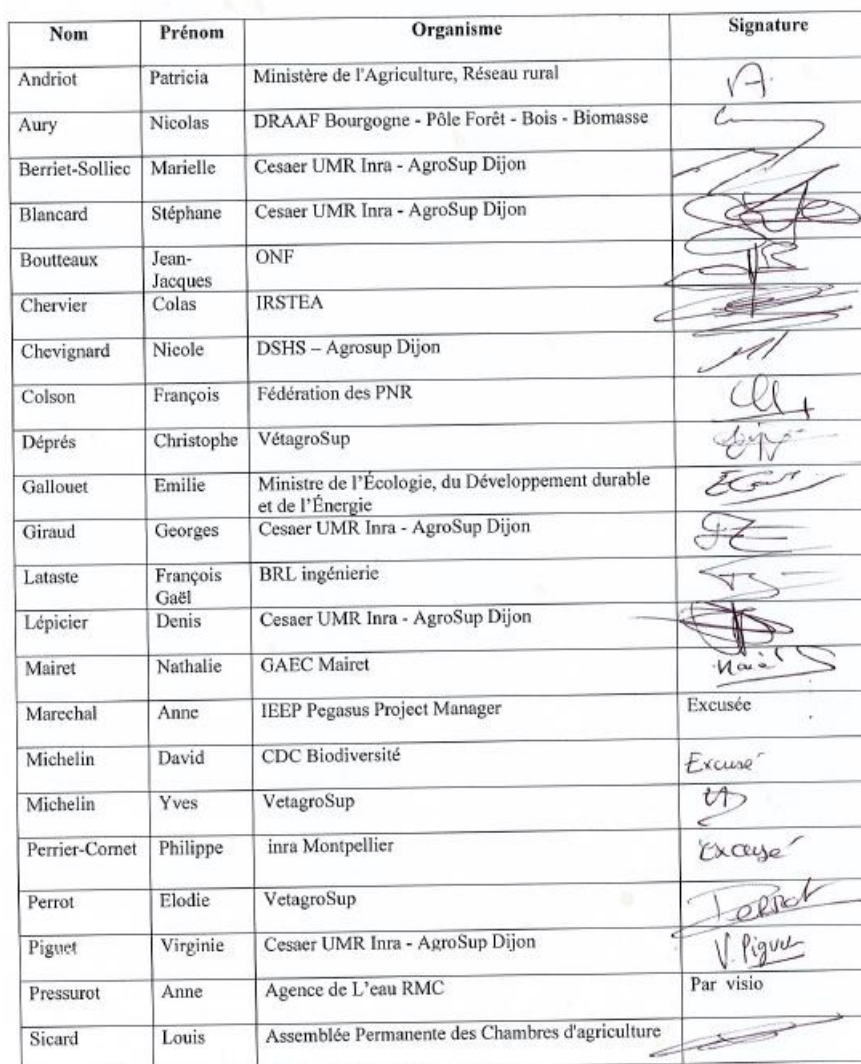 Nom Prénom Organisme Signature
Andriot Patricia Ministère de l'Agriculture, Réseau rural
Aury Nicolas DRAAF Bourgogne - Pôle Forêt - Bois - Biomasse
Berriet-Solliec Marielle Cesaer UMR Inra - AgroSup Dijon
Blancard Stéphane Cesaer UMR Inra - AgroSup Dijon
Boutteaux Jean- ONF
Jacques
Chervier Colas IRSTEA
Chevignard Nicole DSHS – Agrosup Dijon
Colson François Fédération des PNR
Déprés Christophe VétagroSup
Gallouet Emilie Ministre de l'Écologie, du Développement durable
et de l'Énergie
Giraud Georges Cesaer UMR Inra - AgroSup Dijon
Lataste François BRL ingénierie
Gaël
Lépicier Denis Cesaer UMR Inra - AgroSup Dijon
Mairet Nathalie GAEC Mairet
Marechal Anne IEEP Pegasus Project Manager Excusée
Michelin David CDC Biodiversité Excusé
Michelin Yves VetagroSup
Perrier-Cornet Philippe inra Montpellier Excusé
Perrot Elodie VetagroSup Perrot
Piguet Virginie Cesaer UMR Inra - AgroSup Dijon V. Piguet
Pressurot Anne Agence de L'eau RMC Par visio
Sicard Louis Assemblée Permanente des Chambres d'agriculture